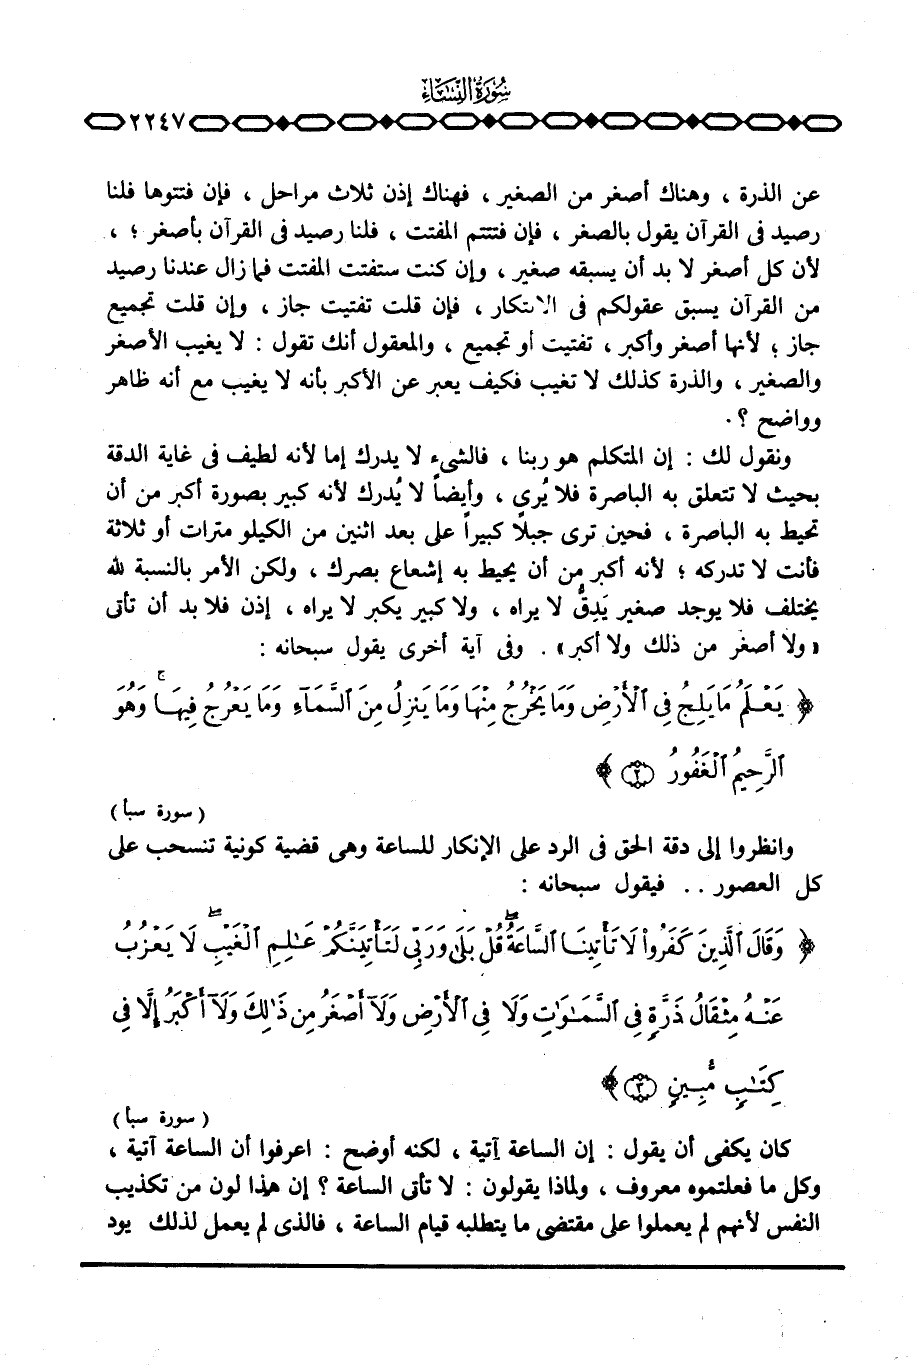 سورة النساء
٢٢٤٧
عن الذرة ، وهناك أصغر من الصغير ، فهناك إذن ثلاث مراحل ، فإن فتتوها فلنا
رصيد فى القرآن يقول بالصغر ، فإن فتتتم المفتت ، فلنا رصيد فى القرآن بأصغر ؛ ،
لأن كل أصغر لا بد أن يسبقه صغير ، وإن كنت ستفتت المفتت فما زال عندنا رصيد
من القرآن يسبق عقولكم فى الابتكار ، فإن قلت تفتيت جاز ، وإن قلت تجميع
جاز ؛ لأنها أصغر وأكبر ، تفتيت أو تجميع ، والمعقول أنك تقول : لا يغيب الأصغر
والصغير ، والذرة كذلك لا تغيب فكيف يعبر عن الأكبر بأنه لا يغيب مع أنه ظاهر
وواضح ؟ .
ونقول لك : إن المتكلم هو ربنا ، فالشىء لا يدرك إما لأنه لطيف فى غاية الدقة
بحيث لا تتعلق به الباصرة فلا يُرى ، وأيضاً لا يُدرك لأنه كبير بصورة أكبر من أن
تحيط به الباصرة ، فحين ترى جبلا كبيراً على بعد اثنين من الكيلو مترات أو ثلاثة
فأنت لا تدركه ؛ لأنه أكبر من أن يحيط به إشعاع بصرك ، ولكن الأمر بالنسبة لله
يختلف فلا يوجد صغير يَدِقُّ لا يراه ، ولا كبير يكبر لا يراه ، إذن فلا بد أن تأتى
« ولا أصغر من ذلك ولا أكبر » . وفى آية أخرى يقول سبحانه :
﴿ يَعْلَمُ مَا يَلِجُ فِى ٱلْأَرْضِ وَمَا يَخْرُجُ مِنْهَا وَمَا يَنزِلُ مِنَ ٱلسَّمَآءِ وَمَا يَعْرُجُ فِيهَا ۚ وَهُوَ
ٱلرَّحِيمُ ٱلْغَفُورُ ﴿٢﴾ ﴾
( سورة سبأ )
وانظروا إلى دقة الحق فى الرد على الإنكار للساعة وهى قضية كونية تنسحب على
كل العصور . . فيقول سبحانه :
﴿ وَقَالَ ٱلَّذِينَ كَفَرُوا۟ لَا تَأْتِينَا ٱلسَّاعَةُ ۖ قُلْ بَلَىٰ وَرَبِّى لَتَأْتِيَنَّكُمْ عَـٰلِمِ ٱلْغَيْبِ ۖ لَا يَعْزُبُ
عَنْهُ مِثْقَالُ ذَرَّةٍ فِى ٱلسَّمَـٰوَٰتِ وَلَا فِى ٱلْأَرْضِ وَلَآ أَصْغَرُ مِن ذَٰلِكَ وَلَآ أَكْبَرُ إِلَّا فِى
كِتَـٰبٍ مُّبِينٍ ﴿٣﴾ ﴾
( سورة سبأ )
كان يكفى أن يقول : إن الساعة آتية ، لكنه أوضح : اعرفوا أن الساعة آتية ،
وكل ما فعلتموه معروف ، ولماذا يقولون : لا تأتى الساعة ؟ إن هذا لون من تكذيب
النفس لأنهم لم يعملوا على مقتضى ما يتطلبه قيام الساعة ، فالذى لم يعمل لذلك يود